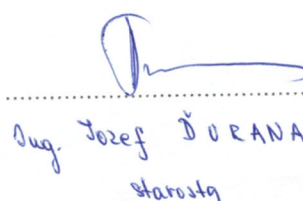 Ing. Jozef ĎURANA
starosta